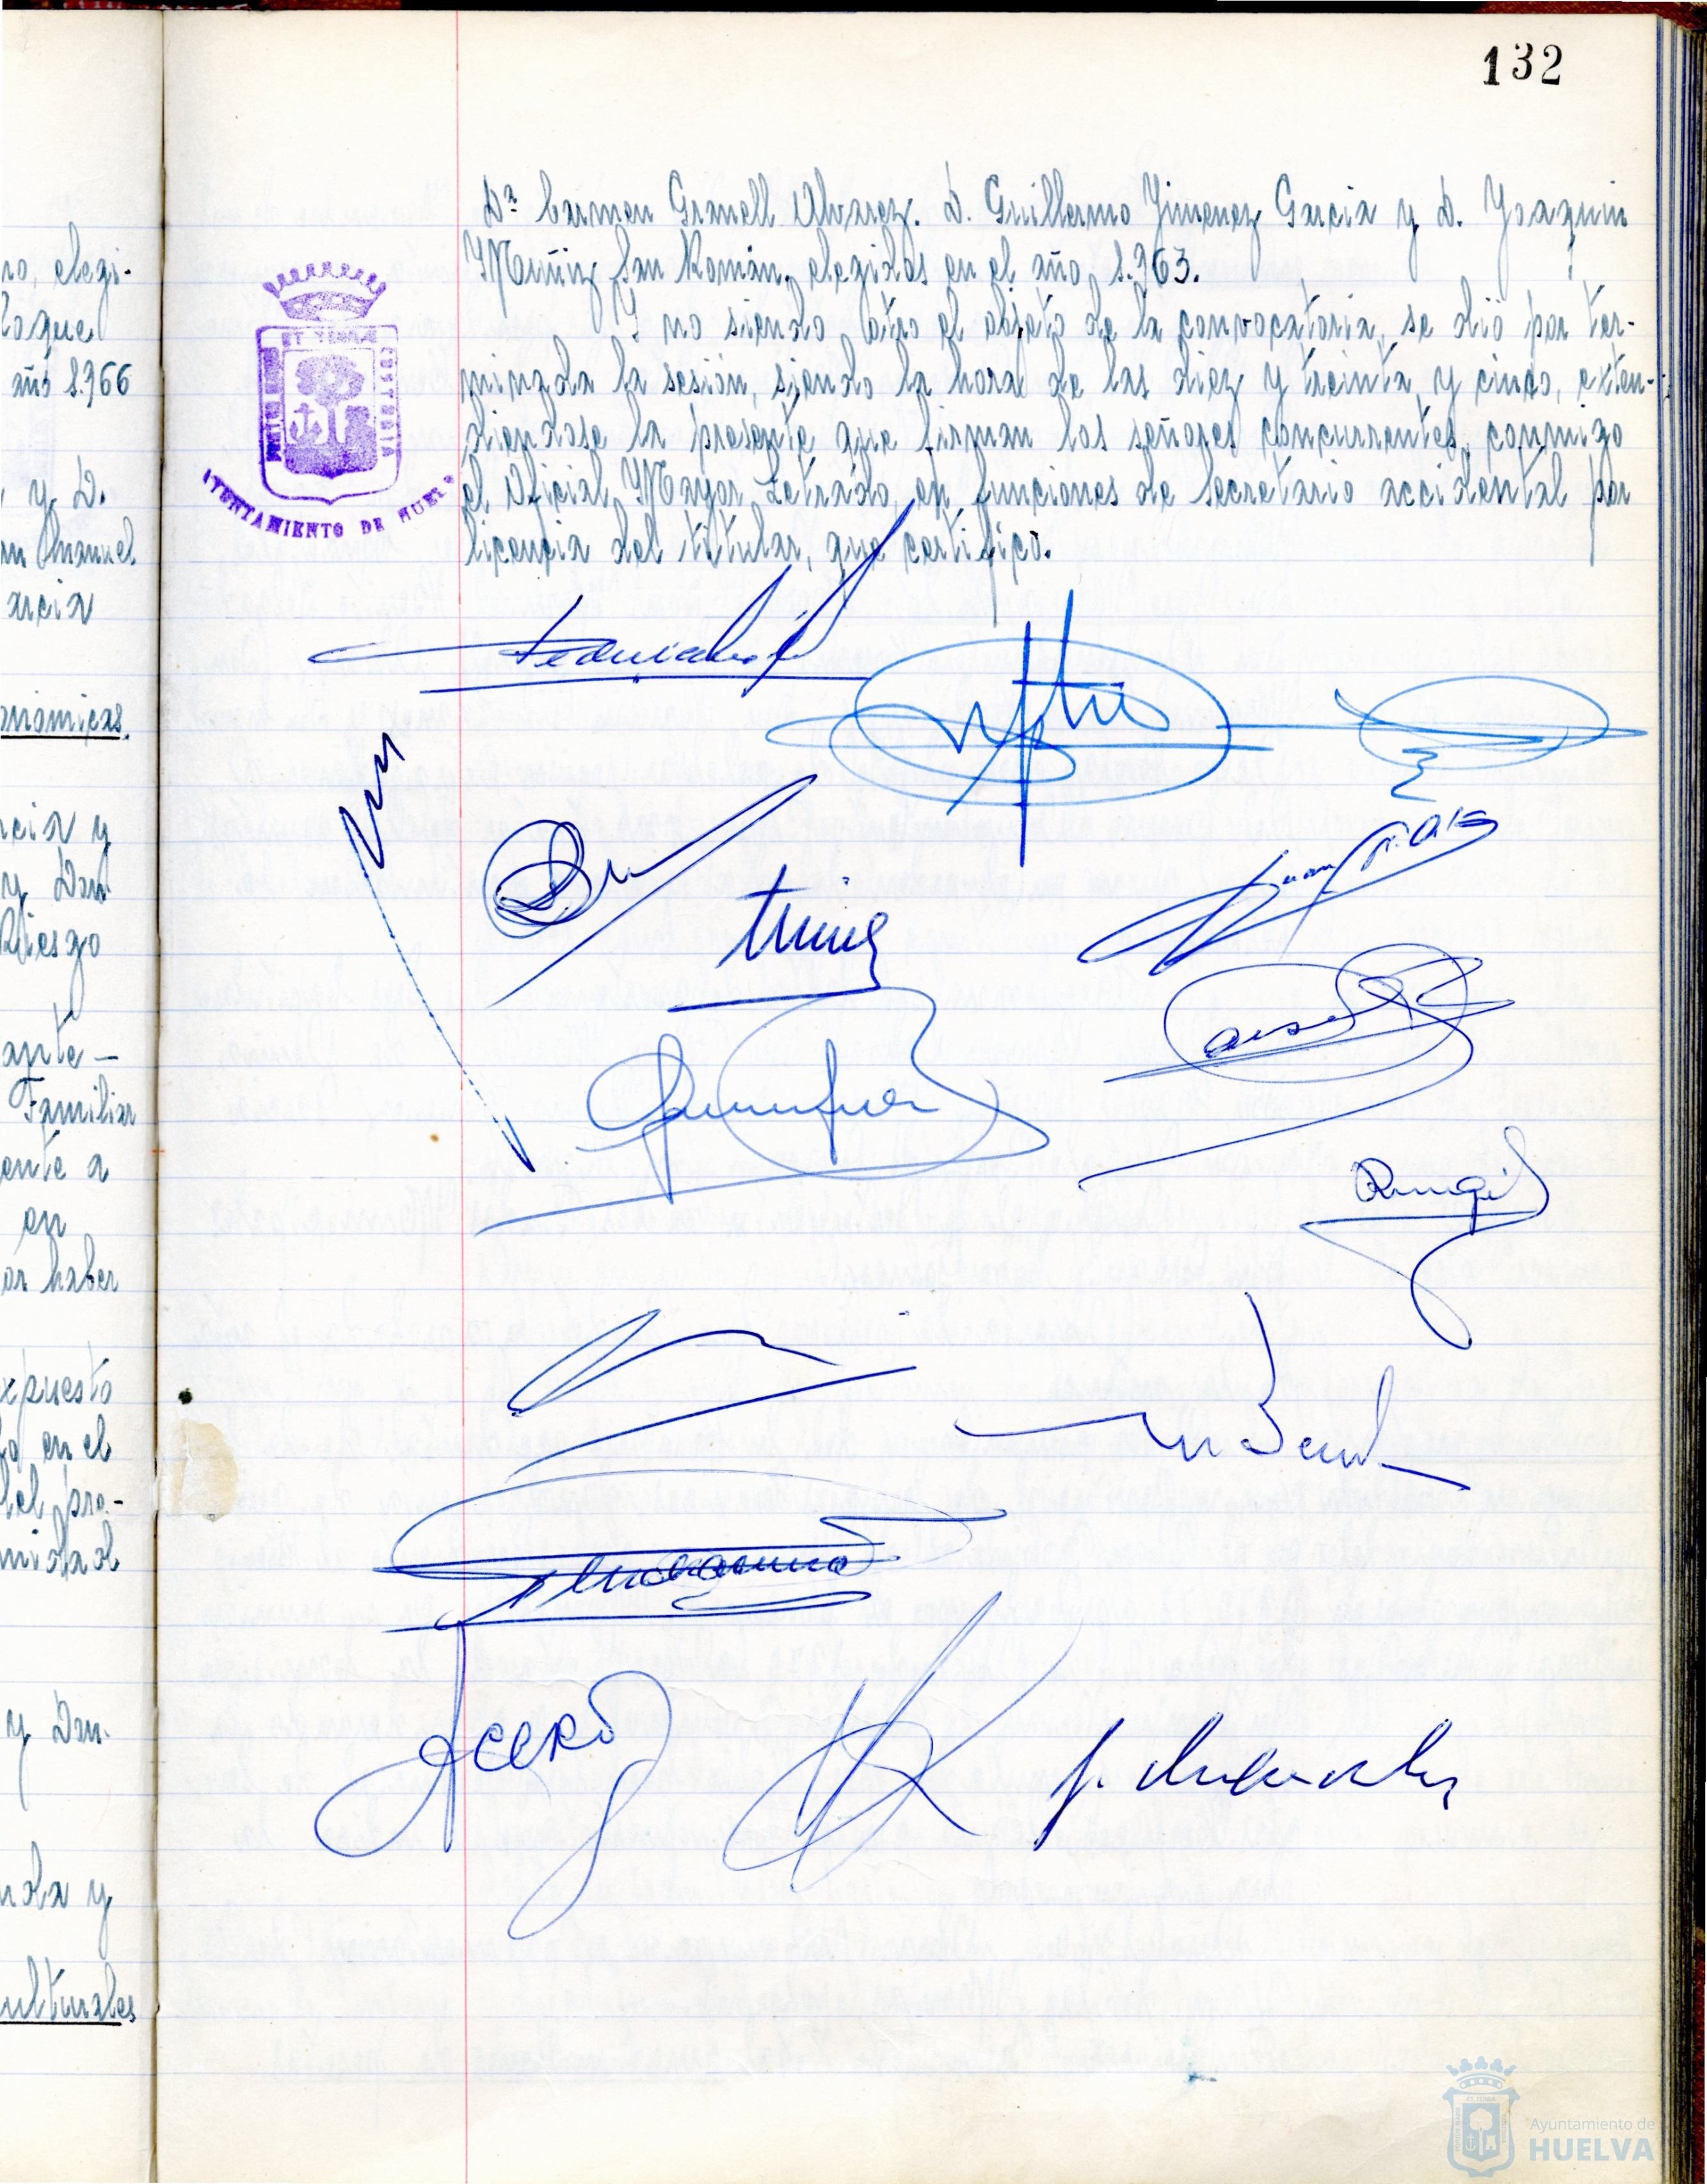 132
Dª Carmen Granell Alvarez. D. Guillermo Jimenez Garcia y D. Joaquin
Muñiz San Román, elegidos en el año 1.963.
Y no siendo otro el objeto de la convocatoria, se dió por ter-
minada la sesión, siendo la hora de las diez y treinta y cinco, exten-
diendose la presente que firman los señores concurrentes, conmigo
el Oficial Mayor Letrado, en funciones de Secretario accidental por
licencia del titular, que certifico.
ET TERRAE
CUSTODIA
AYUNTAMIENTO DE HUELVA
no, elegi-
año 1.966
y D.
Manuel
arcia
onómicas.
rcia y
y Don
Riesgo
ante-
Familiar
ente a
en
or haber
xpuesto
en el
del pro-
midad
y Don
nda y
ulturales
Acero
Ayuntamiento de
HUELVA